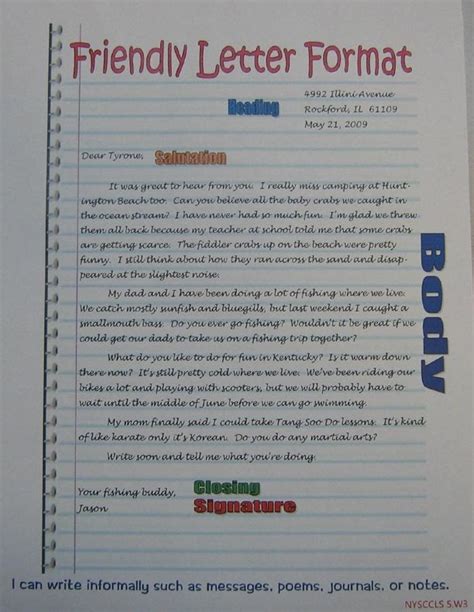 Friendly Letter Format
4992 Illini Avenue
Heading
Rockford, IL 61109
May 21, 2009
Dear Tyrone,
Salutation
It was great to hear from you. I really miss camping at Hunt-
ington Beach too. Can you believe all the baby crabs we caught in
the ocean stream? I have never had so much fun. I'm glad we threw
them all back because my teacher at school told me that some crabs
are getting scarce. The fiddler crabs up on the beach were pretty
funny. I still think about how they ran across the sand and disap-
peared at the slightest noise.
Body
My dad and I have been doing a lot of fishing where we live.
We catch mostly sunfish and bluegills, but last weekend I caught a
smallmouth bass. Do you ever go fishing? Wouldn't it be great if we
could get our dads to take us on a fishing trip together?
What do you like to do for fun in Kentucky? Is it warm down
there now? It's still pretty cold where we live. We've been riding our
bikes a lot and playing with scooters, but we will probably have to
wait until the middle of June before we can go swimming.
My mom finally said I could take Tang Soo Do lessons. It's kind
of like karate only it's Korean. Do you do any martial arts?
Write soon and tell me what you're doing.
Your fishing buddy,
Closing
Jason
Signature
I can write informally such as messages, poems, journals, or notes.
NYSCCLS 5.W3